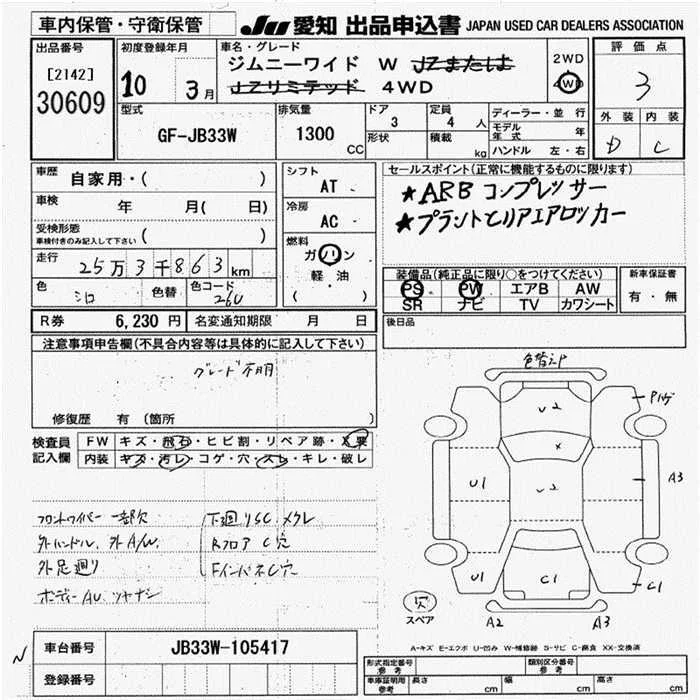 車内保管・守衛保管 JU 愛知 出品申込書 JAPAN USED CAR DEALERS ASSOCIATION
出品番号 初度登録年月 車名・グレード 2WD 評価点
[2142] 10 3月 ジムニーワイド W JZまたは 4WD 3
30609 JZリミテッド 4WD
型式 排気量 ドア 定員 ディーラー・並行 外装 内装
GF-JB33W 1300 CC 3 4 人 モデル年式 年 D C
形状 積載 kg ハンドル 左・右
車歴 自家用・( ) シフト AT セールスポイント(正常に機能するものに限ります)
車検 年 月( 日) 冷房 AC ★ARB コンプレッサー
受検形態 車検付きのみ記入して下さい ( ) 燃料 ★フラントとリアエアロッカー
走行 25万3千863km ガソリン
色 シロ 色替 色コード 26U 軽・油 ( )
装備品(純正品に限り○をつけてください) 新車保証書
PS PW エアB AW 有・無
SR ナビ TV カワシート
R券 6,230円 名変通知期限 月 日 後日品
注意事項申告欄(不具合内容等は具体的に記入して下さい)
グレード不明
修復歴 有 (箇所 )
検査員記入欄 FW キズ・飛石・ヒビ割・リペア跡・X要
内装 キズ・汚レ・コゲ・穴・スレ・キレ・破レ
色替えP
U2 Pハゲ
X
U1 U2 A3
U1 C1 C1
欠 スペア A2 A3
フロントワイパー 一部欠 下廻りSC メクレ
外ハンドル、外A/W、 Rフロア C穴
外足廻り FインパネC穴
ボディーAU ツヤナシ
A-キズ E-エクボ U-凹み W-補修跡 S-サビ C-腐食 XX-交換済
車台番号 JB33W-105417
登録番号
形式指定番号 参考 類別区分番号 参考
車庫証明用 参考 長さ cm 幅 cm 高さ cm